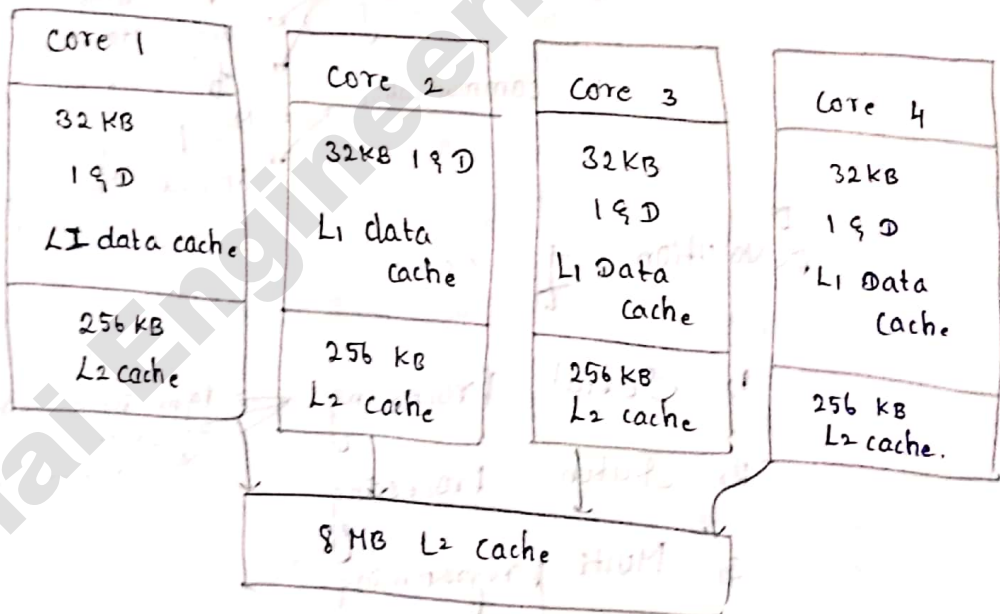 Core 1
32 KB
I & D
LI data cache
256 KB
L2 cache
Core 2
32KB I & D
L1 data
cache
256 KB
L2 cache
Core 3
32KB
I & D
L1 Data
Cache
256 KB
L2 cache
Core 4
32KB
I & D
L1 Data
Cache
256 KB
L2 cache.
8 MB L2 cache